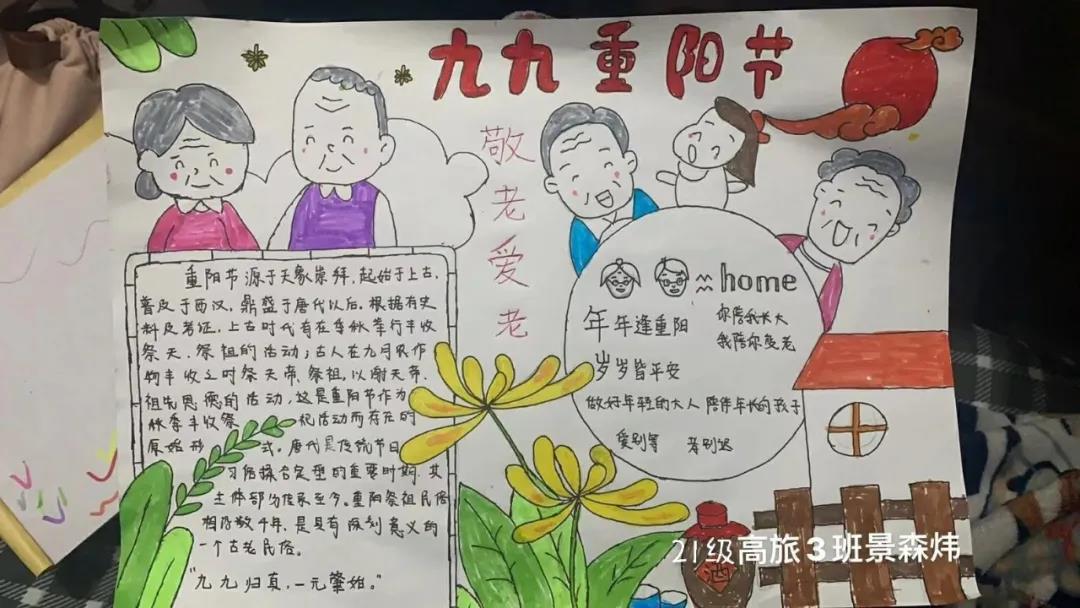 九九重阳节
敬老爱老
重阳节源于天象崇拜,起始于上古,
普及于西汉,鼎盛于唐代以后。根据有史
料及考证,上古时代有在季秋举行丰收
祭天、祭祖的活动;古人在九月农作
物丰收之时祭天帝、祭祖,以谢天帝、
祖先恩德的活动,这是重阳节作为
秋季丰收祭祀活动而存在的
原始形式。唐代是传统节日
习俗揉合定型的重要时期,其
主体部分传承至今。重阳祭祖民俗
相沿数千年,是具有深刻意义的
一个古老民俗。
"九九归真,一元肇始。"
home
年年逢重阳
岁岁皆平安
你陪我长大
我陪你变老
做好年轻的大人 陪伴年长的孩子
爱别等 孝别迟
酒
21级高旅3班景森炜